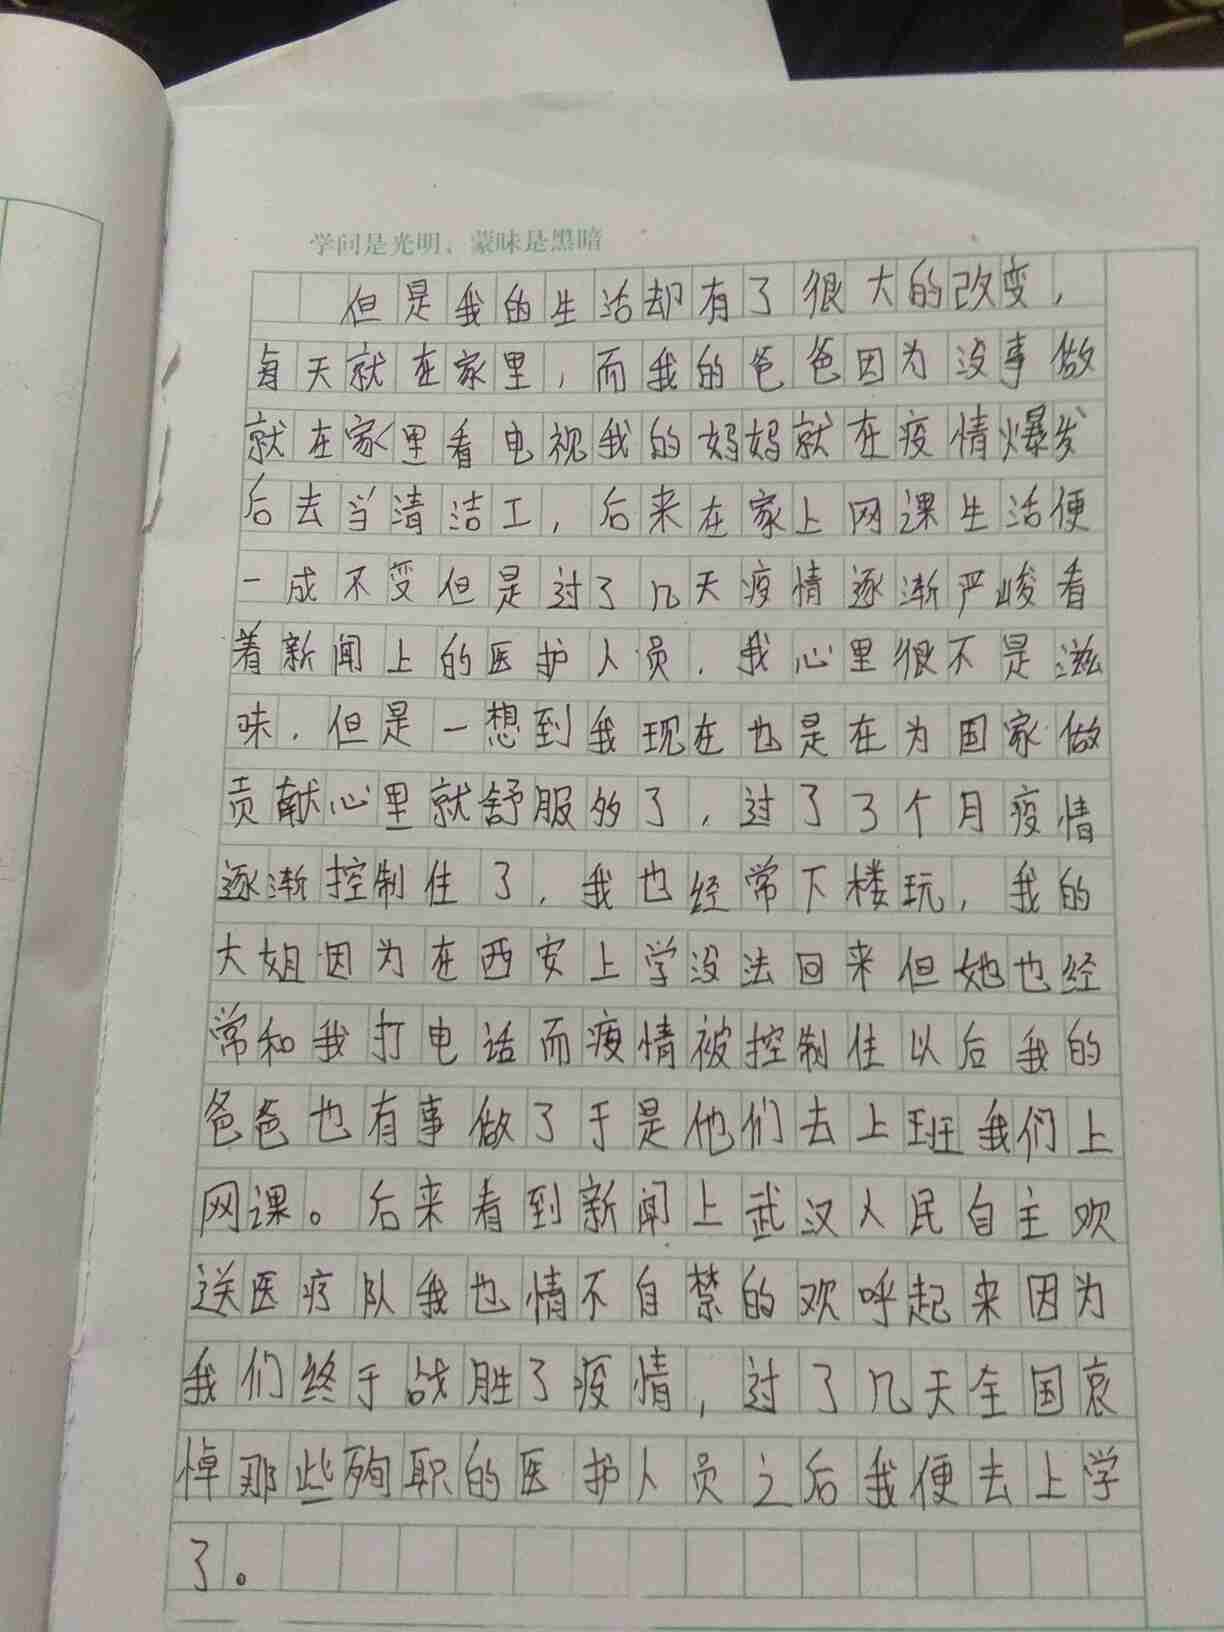 学问是光明，蒙昧是黑暗
但是我的生活却有了很大的改变，
每天就在家里，而我的爸爸因为没事做
就在家里看电视我的妈妈就在疫情爆发
后去当清洁工，后来在家上网课生活便
一成不变但是过了几天疫情逐渐严峻看
着新闻上的医护人员，我心里很不是滋
味，但是一想到我现在也是在为国家做
贡献心里就舒服多了，过了3个月疫情
逐渐控制住了，我也经常下楼玩，我的
大姐因为在西安上学没法回来但她也经
常和我打电话而疫情被控制住以后我的
爸爸也有事做了于是他们去上班我们上
网课。后来看到新闻上武汉人民自主欢
送医疗队我也情不自禁的欢呼起来因为
我们终于战胜了疫情，过了几天全国哀
悼那些殉职的医护人员之后我便去上学
了。